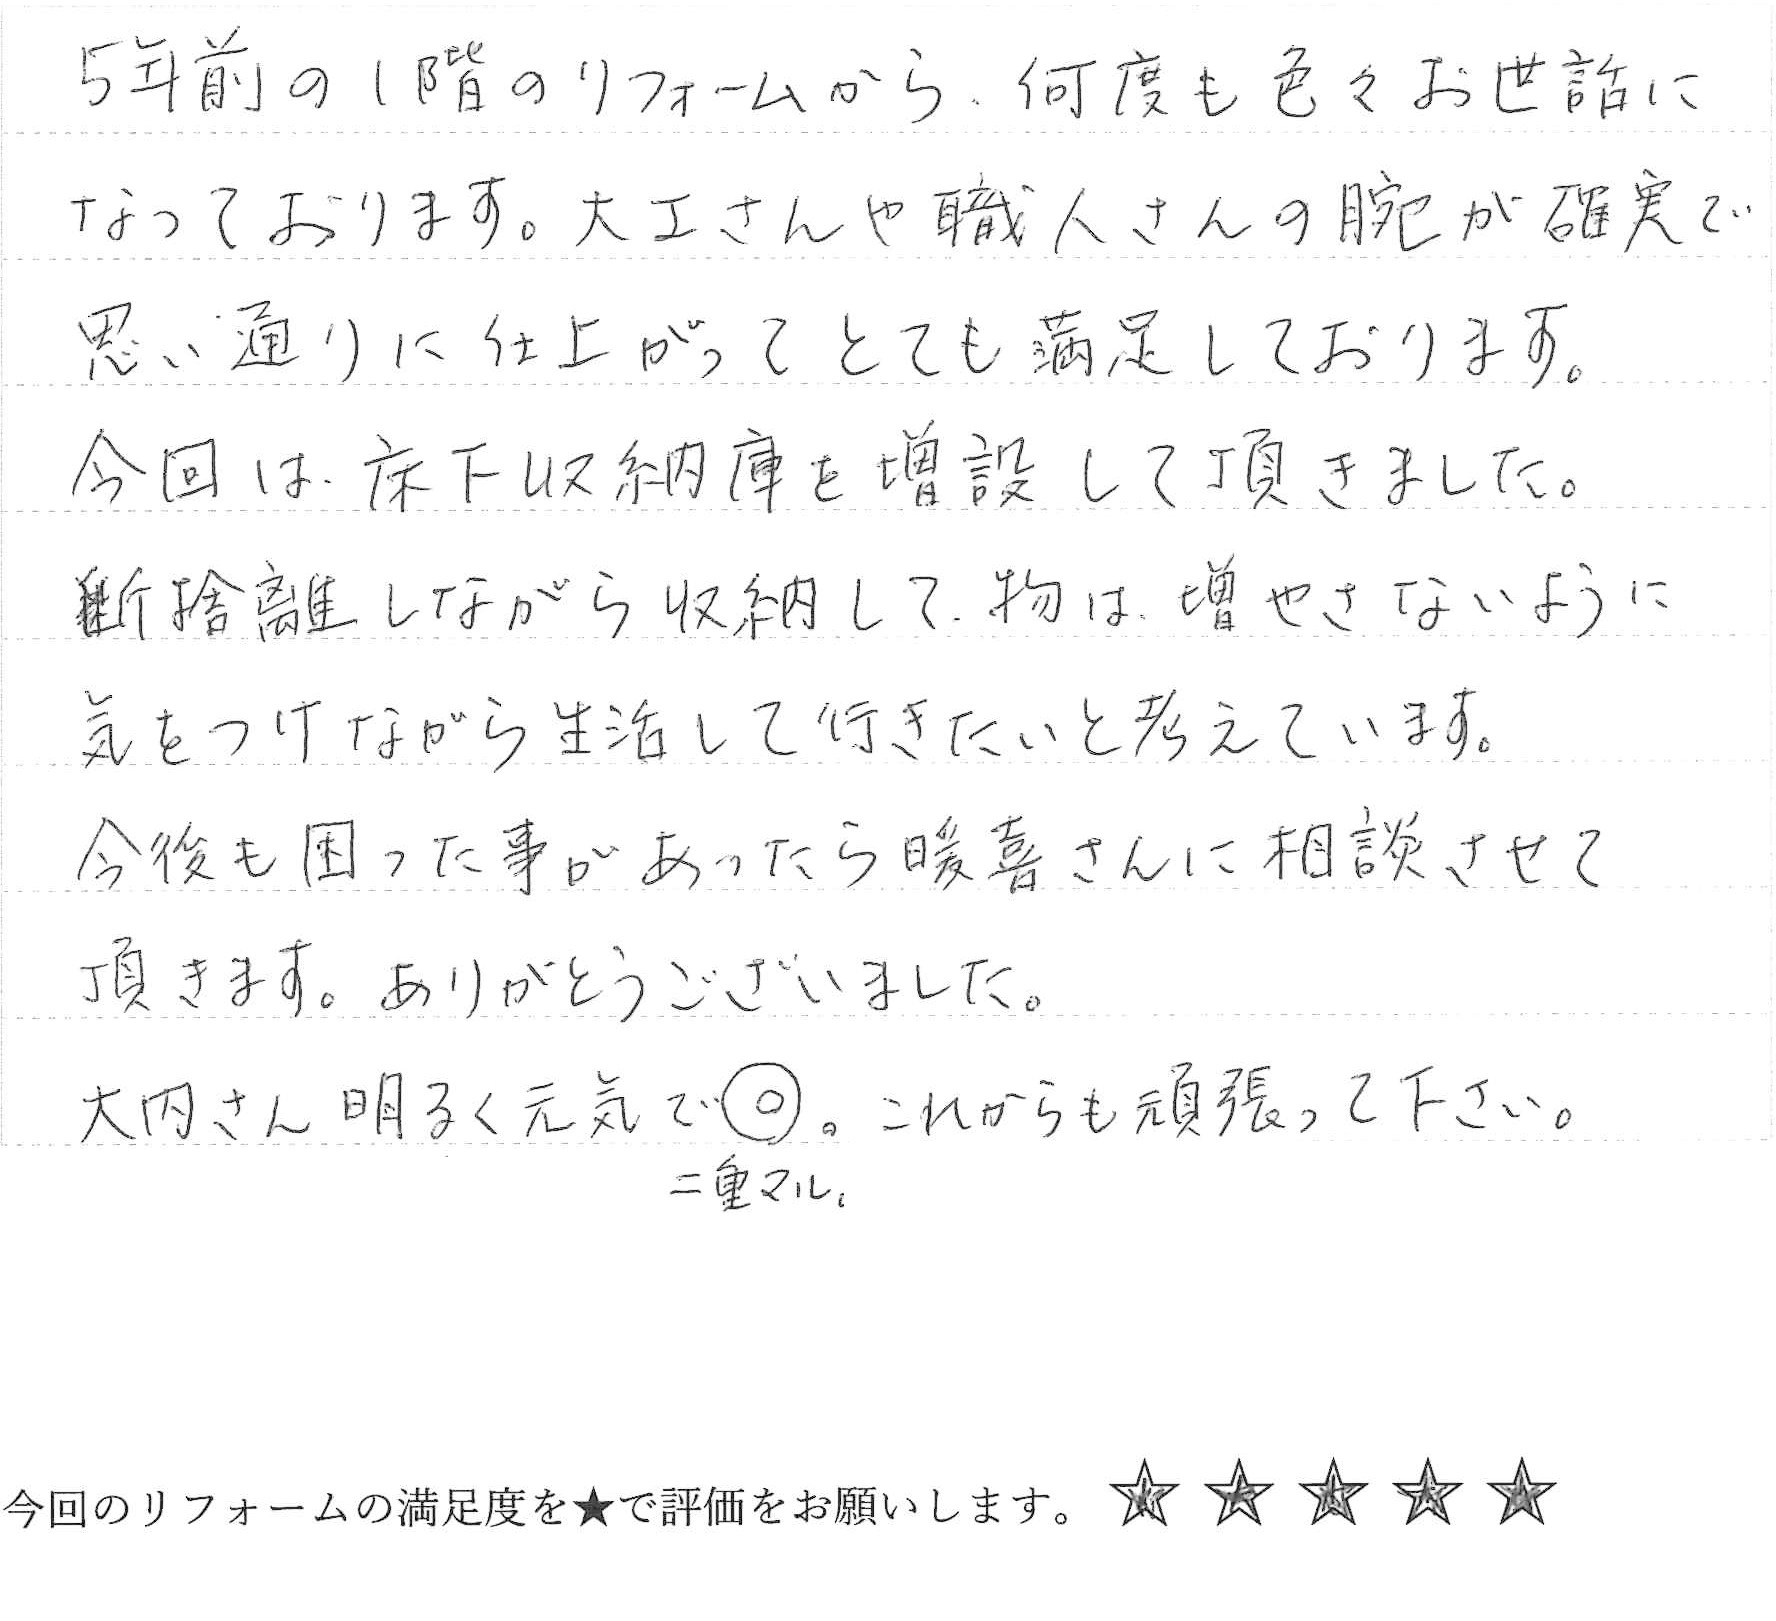 5年前の1階のリフォームから、何度も色々お世話に
なっております。大工さんや職人さんの腕が確実で
思い通りに仕上がってとても満足しております。
今回は、床下収納庫を増設して頂きました。
断捨離しながら収納して、物は、増やさないように
気をつけながら生活して行きたいと考えています。
今後も困った事があったら暖喜さんに相談させて
頂きます。ありがとうございました。
大内さん明るく元気で◎。これからも頑張って下さい。
二重マル。
今回のリフォームの満足度を★で評価をお願いします。★★★★★